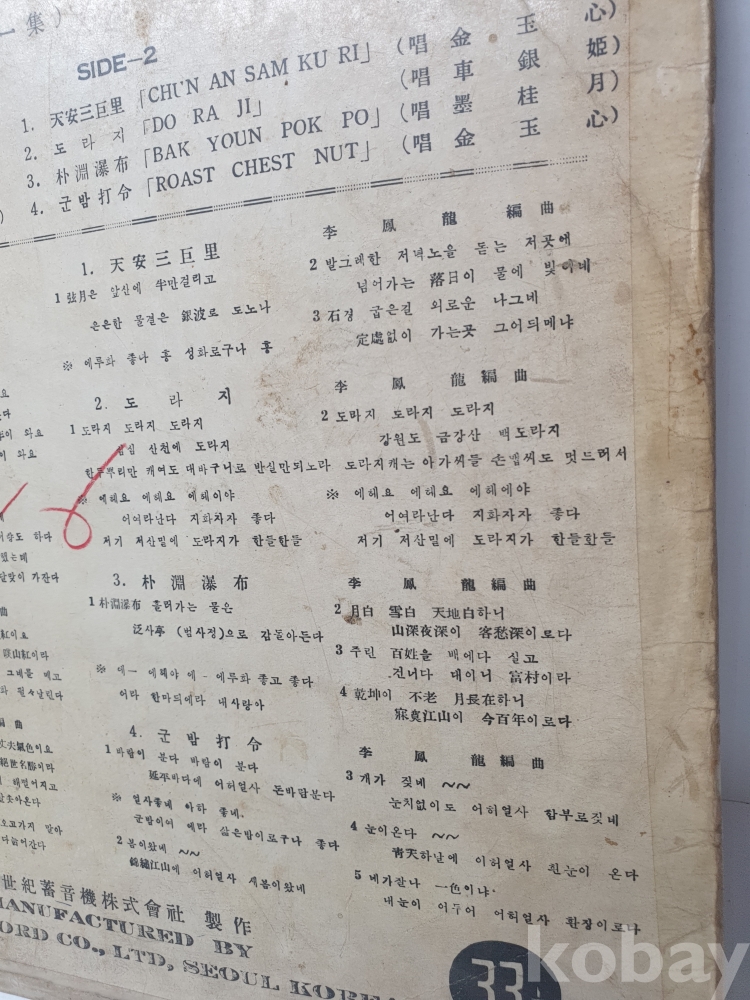 集)
SIDE-2
1. 天安三巨里「CHUN AN SAM KU RI」(唱 金 玉 心)
2. 도 라 지「DO RA JI」(唱 車 銀 姫)
3. 朴淵瀑布「BAK YOUN POK PO」(唱 墨 桂 月)
4. 군밤打令「ROAST CHEST NUT」(唱 金 玉 心)
1. 天安三巨里 李 鳳 龍 編曲
1 弦月은 앞산에 半만걸리고
은은한 물결은 銀波로 도노나
※ 에루화 좋나 흥 성화로구나 흥
2 발그레한 저녁노을 돋는 저곳에
넘어가는 落日이 물에 빛이네
3 石경 굽은길 외로운 나그네
定處없이 가는곳 그어듸메냐
2. 도 라 지 李 鳳 龍 編 曲
1 도라지 도라지 도라지
심심 산천에 도라지
한두뿌리만 캐여도 대바구니로 반실만되노라
※ 에헤요 에헤요 에헤이야
어여라난다 지화자자 좋다
저기 저산밑에 도라지가 한들한들
2 도라지 도라지 도라지
강원도 금강산 백도라지
도라지캐는 아가씨들 손맵씨도 멋드러서
※ 에헤요 에헤요 에헤에야
어여라난다 지화자자 좋다
저기 저산밑에 도라지가 한들한들
3. 朴淵瀑布 李 鳳 龍 編 曲
1 朴淵瀑布 흘러가는 물은
泛사亭 (범사정)으로 감돌아든다
※ 에ー 에헤야 에ー에루화 좋고 좋다
어라 한마듸에라 내사랑아
2 月白 雪白 天地白하니
山深夜深이 客愁深이로다
3 주린 百姓을 배에다 실고
건너다 대이니 富村이라
4 乾坤이 不老 月長在하니
寂寞江山이 今百年이로다
4. 군밤打令 李 鳳 龍 編 曲
1 바람이 분다 바람이 분다
延平바다에 어허얼사 돈바람분다
※ 얼사좋네 아하 좋네.
군밤이여 에라 삶은밤이로구나 좋다
2 봄이왔네 ~~
錦繡江山에 이허얼사 새봄이왔네
3 개가 짖네 ~~
눈치없이도 어허얼사 함부로짖네
4 눈이온다 ~~
靑天하날에 이허얼사 흰눈이 온다
5 네가잘나 一色이냐·
내눈이 어두어 어허얼사 환장이로다
世紀蓄音機株式會社 製作
MANUFACTURED BY
ORD CO., LTD, SEOUL KOREA
33
kobay